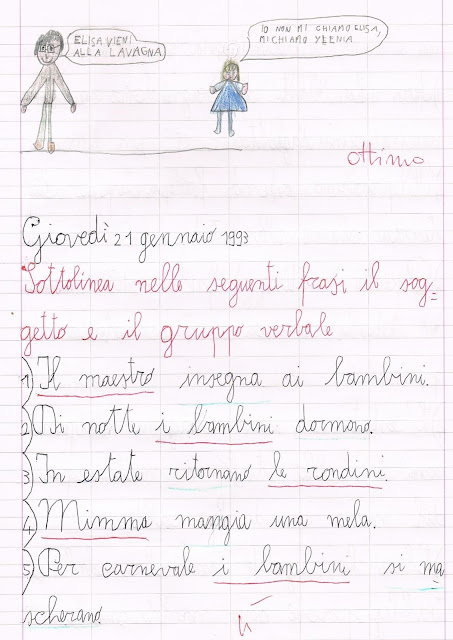 ELISA VIENI
ALLA LAVAGNA
IO NON MI CHIAMO ELISA,
MI CHIAMO YLENIA
ottimo
Giovedì 21 gennaio 1993
Sottolinea nelle seguenti frasi il sog=
getto e il gruppo verbale
1) Il maestro insegna ai bambini.
2) Di notte i bambini dormono.
3) In estate ritornano le rondini.
4) Mimmo mangia una mela.
5) Per carnevale i bambini si ma
scherano